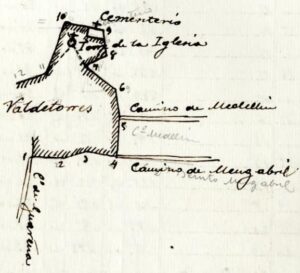 10 Cementerio
9
Torre de la Iglesia
8
7
12
6
Valdetorres
Camino de Medellin
5
Cº Medellin
1 2 3 4
Camino de Mengabril
Mengabril
Cº de Guareña